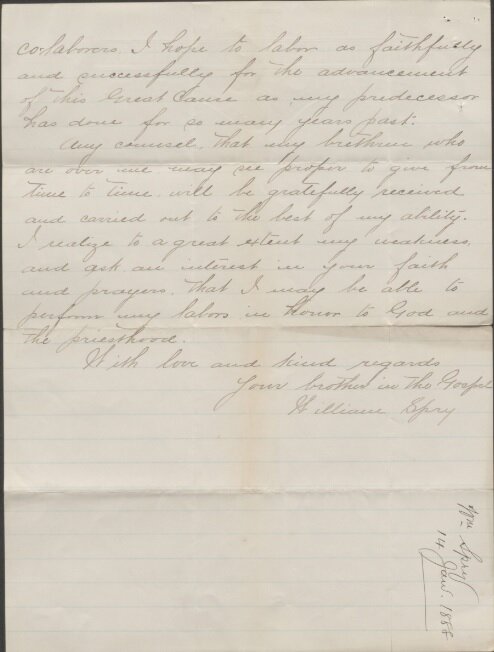 co-laborers. I hope to labor as faithfully
and successfully for the advancement
of this Great Cause as my predecessor
has done for so many years past.
Any counsel, that my brethren who
are over me may see proper to give from
time to time, will be gratefully received
and carried out to the best of my ability.
I realize to a great extent my weakness,
and ask an interest in your faith
and prayers, that I may be able to
perform my labors in honor to God and
the priesthood.
With love and kind regards
Your brother in the Gospel
William Spry
Wm Spry
14 Jan. 1888